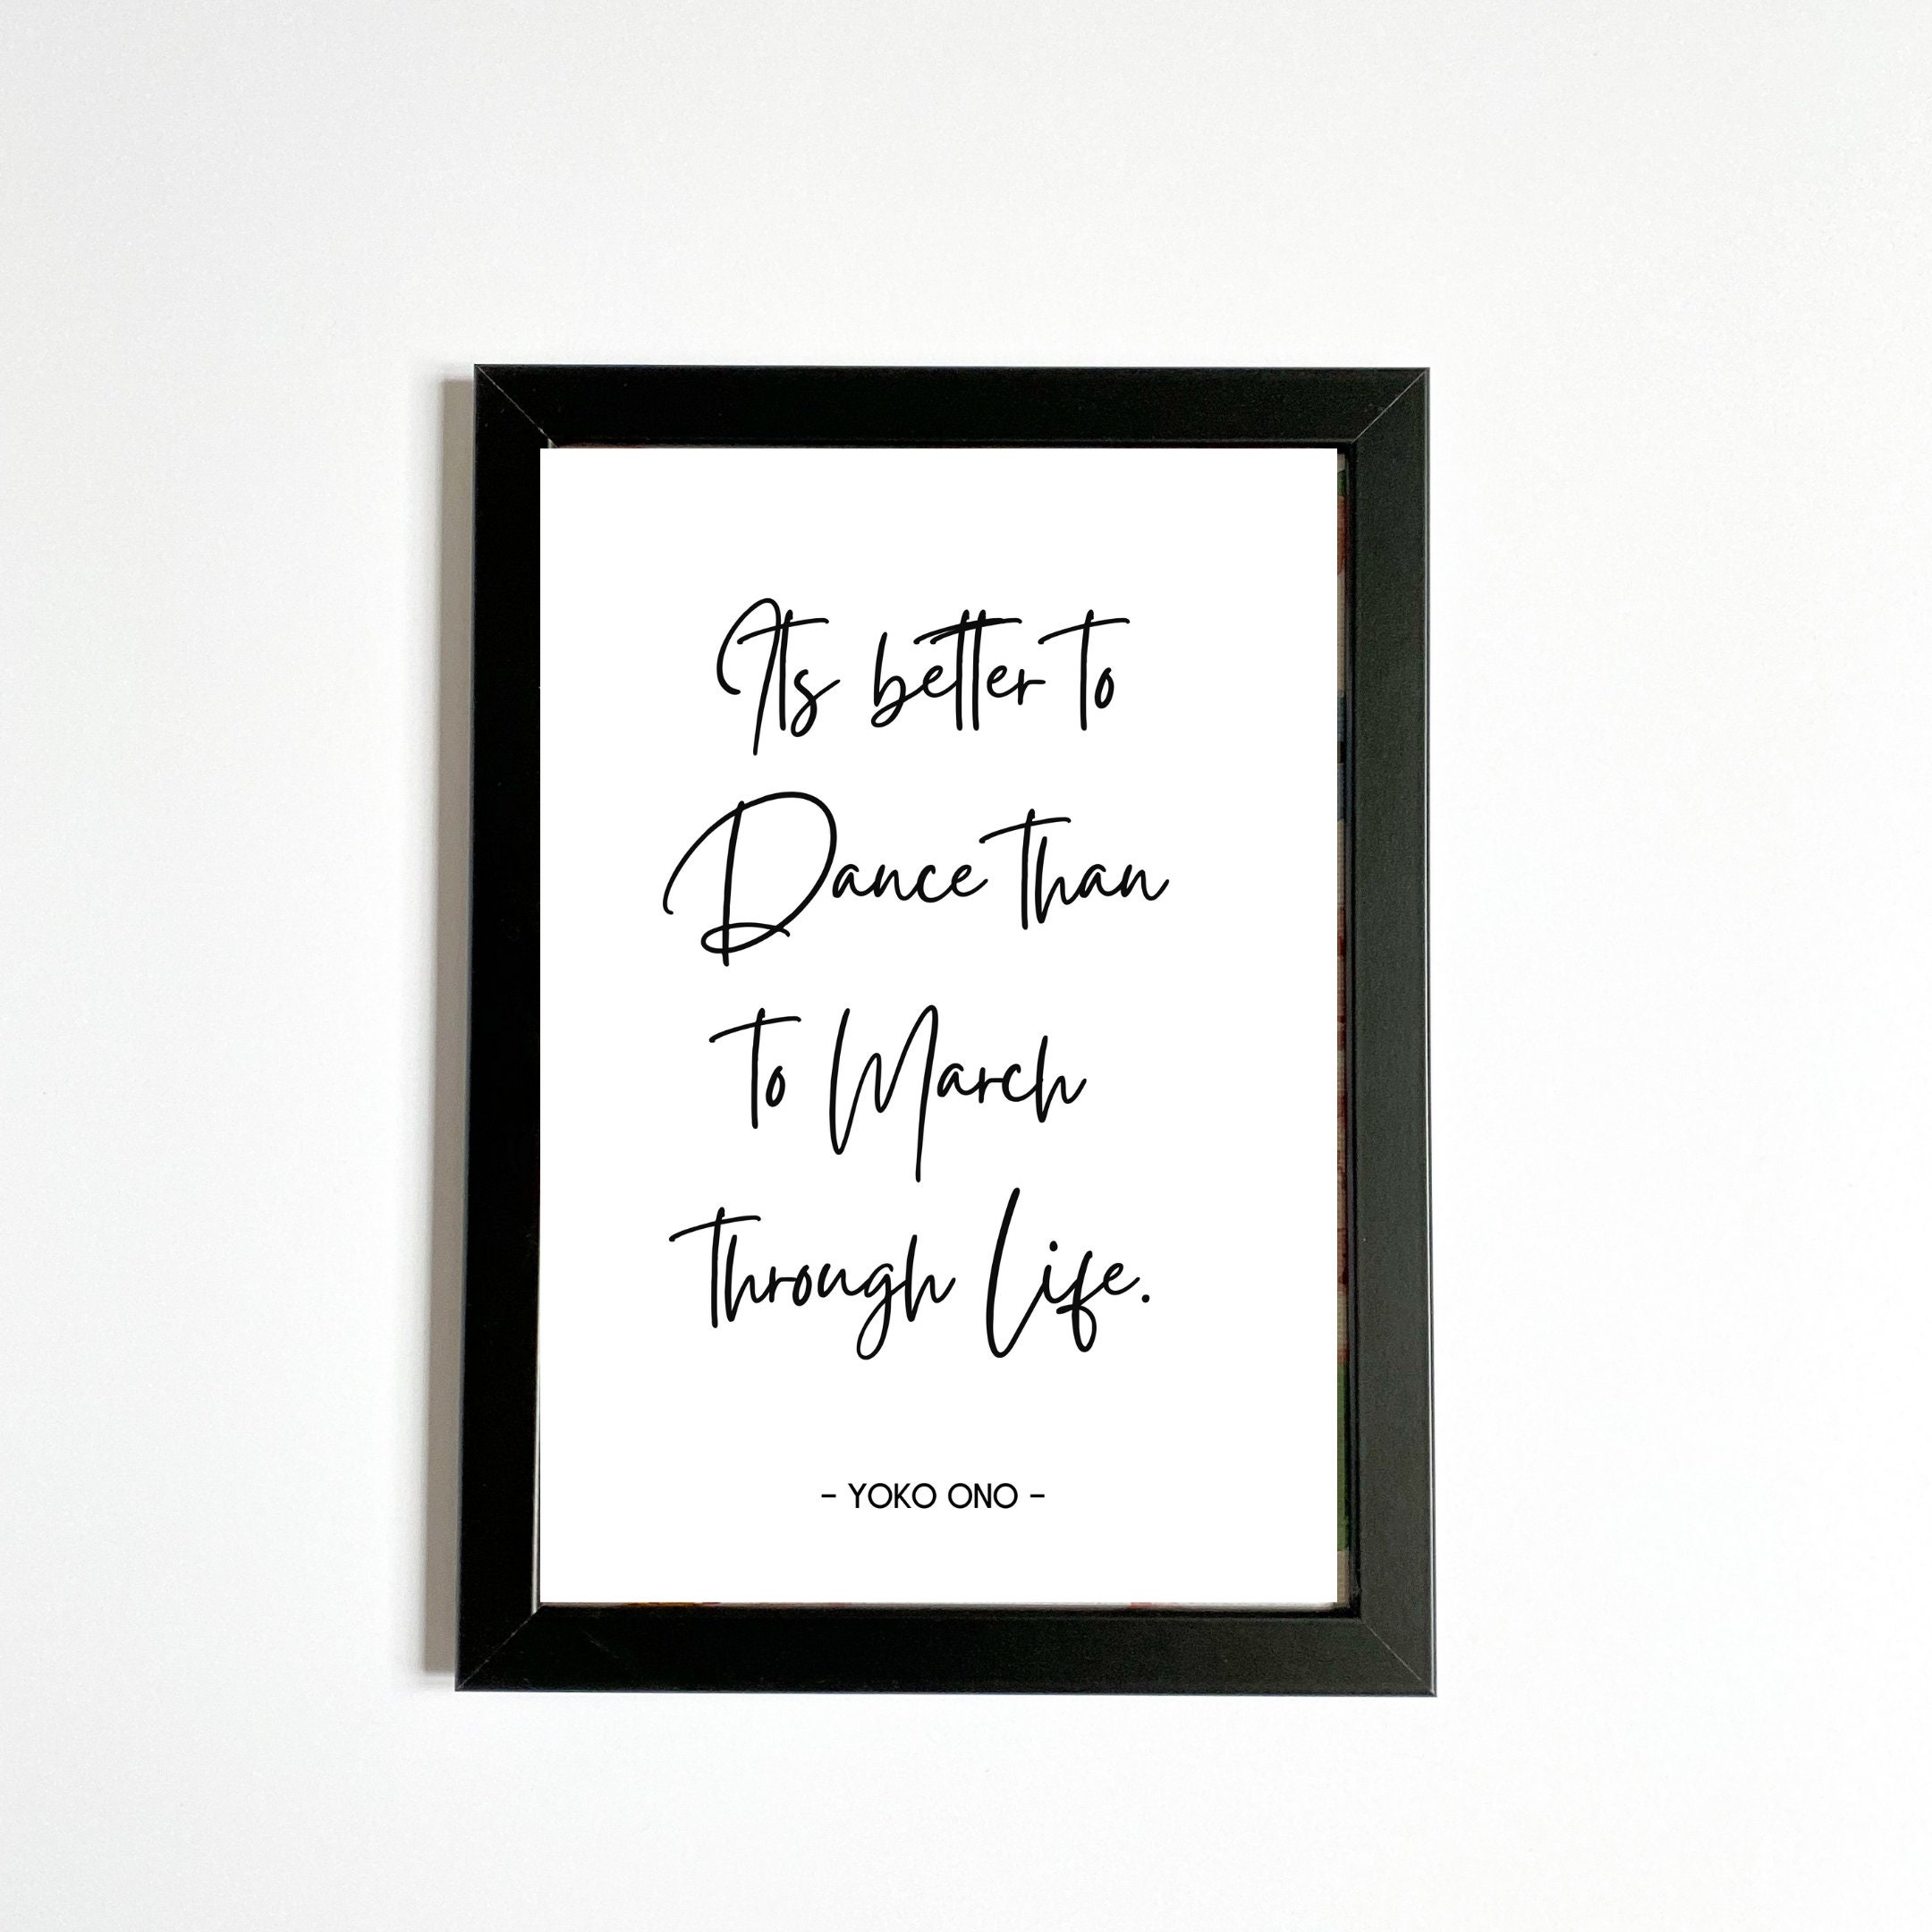 Its better to
Dance than
to March
through Life.
- YOKO ONO -